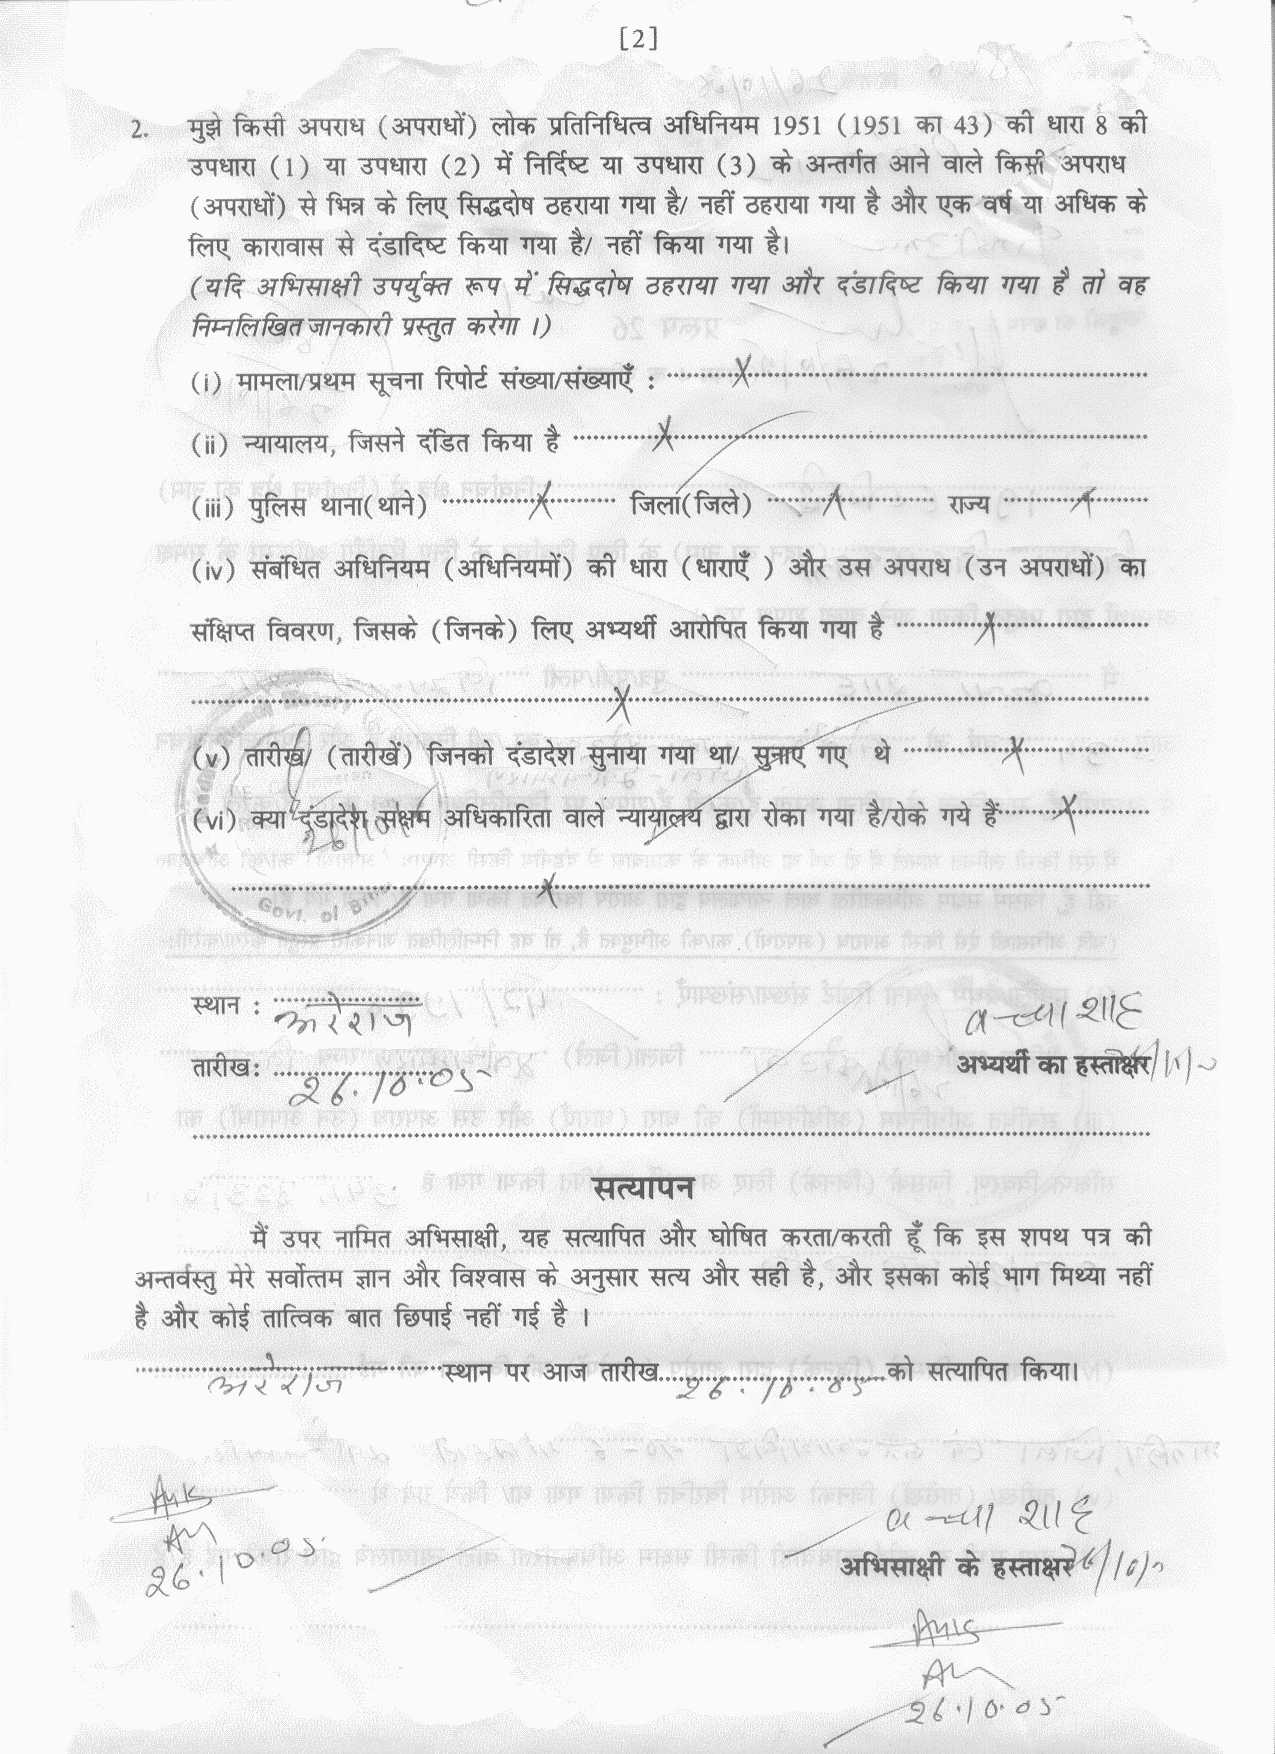 [2]
2. मुझे किसी अपराध (अपराधों) लोक प्रतिनिधित्व अधिनियम 1951 (1951 का 43) की धारा 8 की
उपधारा (1) या उपधारा (2) में निर्दिष्ट या उपधारा (3) के अन्तर्गत आने वाले किसी अपराध
(अपराधों) से भिन्न के लिए सिद्धदोष ठहराया गया है/ नहीं ठहराया गया है और एक वर्ष या अधिक के
लिए कारावास से दंडादिष्ट किया गया है/ नहीं किया गया है।
(यदि अभिसाक्षी उपर्युक्त रूप में सिद्धदोष ठहराया गया और दंडादिष्ट किया गया है तो वह
निम्नलिखित जानकारी प्रस्तुत करेगा ।)
(i) मामला/प्रथम सूचना रिपोर्ट संख्या/संख्याएँ : X
(ii) न्यायालय, जिसने दंडित किया है X
(iii) पुलिस थाना(थाने) X जिला(जिले) X राज्य X
(iv) संबंधित अधिनियम (अधिनियमों) की धारा (धाराएँ ) और उस अपराध (उन अपराधों) का
संक्षिप्त विवरण, जिसके (जिनके) लिए अभ्यर्थी आरोपित किया गया है X
X
(v) तारीख/ (तारीखें) जिनको दंडादेश सुनाया गया था/ सुनाए गए थे X
(vi) क्या दंडादेश सक्षम अधिकारिता वाले न्यायालय द्वारा रोका गया है/रोके गये हैं X
X
Govt. of
स्थान : अरेराज
बच्चा शाह
तारीख: 26.10.05
अभ्यर्थी का हस्ताक्षर
सत्यापन
मैं उपर नामित अभिसाक्षी, यह सत्यापित और घोषित करता/करती हूँ कि इस शपथ पत्र की
अन्तर्वस्तु मेरे सर्वोत्तम ज्ञान और विश्वास के अनुसार सत्य और सही है, और इसका कोई भाग मिथ्या नहीं
है और कोई तात्विक बात छिपाई नहीं गई है ।
अरेराज स्थान पर आज तारीख 26.10.05 को सत्यापित किया।
बच्चा शाह
26.10.05
अभिसाक्षी के हस्ताक्षर
26.10.05